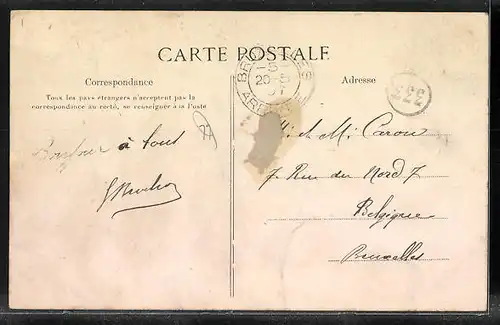 CARTE POSTALE
Correspondance
Tous les pays étrangers n'acceptent pas la
correspondance au recto, se renseigner à la Poste
Adresse
5
20-5
07
335
Bonjour à tous
M. et M. Carou
7 Rue du Nord 7
Belgique
Bruxelles